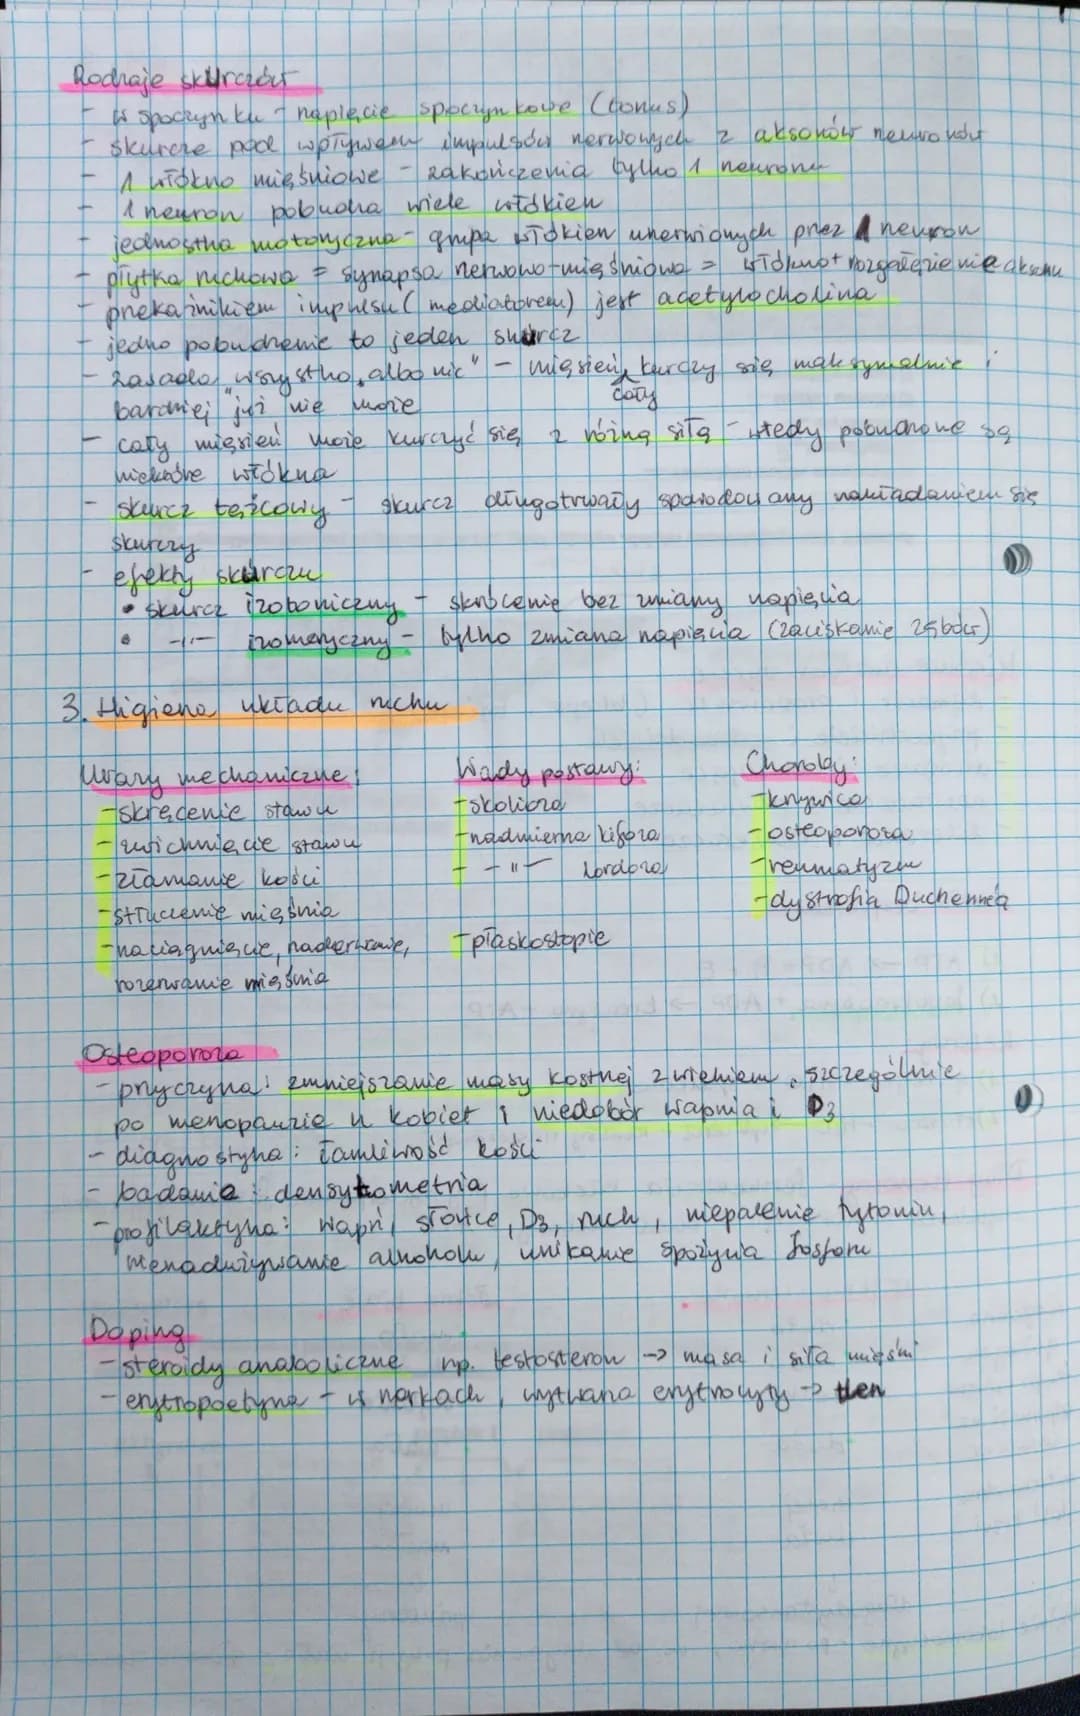 Rodzaje skurczów
- w spoczynku - napięcie spoczynkowe (tonus)
- skurcze pod wpływem impulsów nerwowych z aksonów neuronów
- 1 włókno mięśniowe - zakończenia tylko 1 neuronu
- 1 neuron pobudza wiele włókien
- jednostka motoryczna - grupa włókien unerwionych przez 1 neuron
- płytka ruchowa = synapsa nerwowo-mięśniowa = włókno + rozgałęzienie aksonu
- przekaźnikiem impulsu (mediatorem) jest acetylocholina
- jedno pobudzenie to jeden skurcz
- zasada „wszystko albo nic" - mięsień kurczy się maksymalnie i
cały
bardziej już nie może
- cały mięsień może kurczyć się z różną siłą - wtedy pobudzone są
niektóre włókna
- skurcz tężcowy - skurcz długotrwały spowodowany nakładaniem się
skurczy
- efekty skurczu
• skurcz izotoniczny - skrócenie bez zmiany napięcia
• -"- izometryczny - tylko zmiana napięcia (zaciskanie zębów)
3. Higiena układu ruchu
Urazy mechaniczne: Wady postawy: Choroby:
- skręcenie stawu - skolioza - krzywica
- zwichnięcie stawu - nadmierna kifoza - osteoporoza
- złamanie kości - -"- lordoza - reumatyzm
- stłuczenie mięśnia - dystrofia Duchenne'a
- naciągnięcie, naderwanie, - płaskostopie
rozerwanie mięśnia
Osteoporoza
- przyczyna: zmniejszanie masy kostnej z wiekiem, szczególnie
po menopauzie u kobiet i niedobór wapnia i D3
- diagnostyka: łamliwość kości
- badania: densytometria
- profilaktyka: wapń, słońce, D3, ruch, niepalenie tytoniu,
nienadużywanie alkoholu, unikanie spożycia fosforu
Doping
- steroidy anaboliczne np. testosteron -> masa i siła mięśni
- erytropoetyna - w nerkach, erytrocyty -> tlen